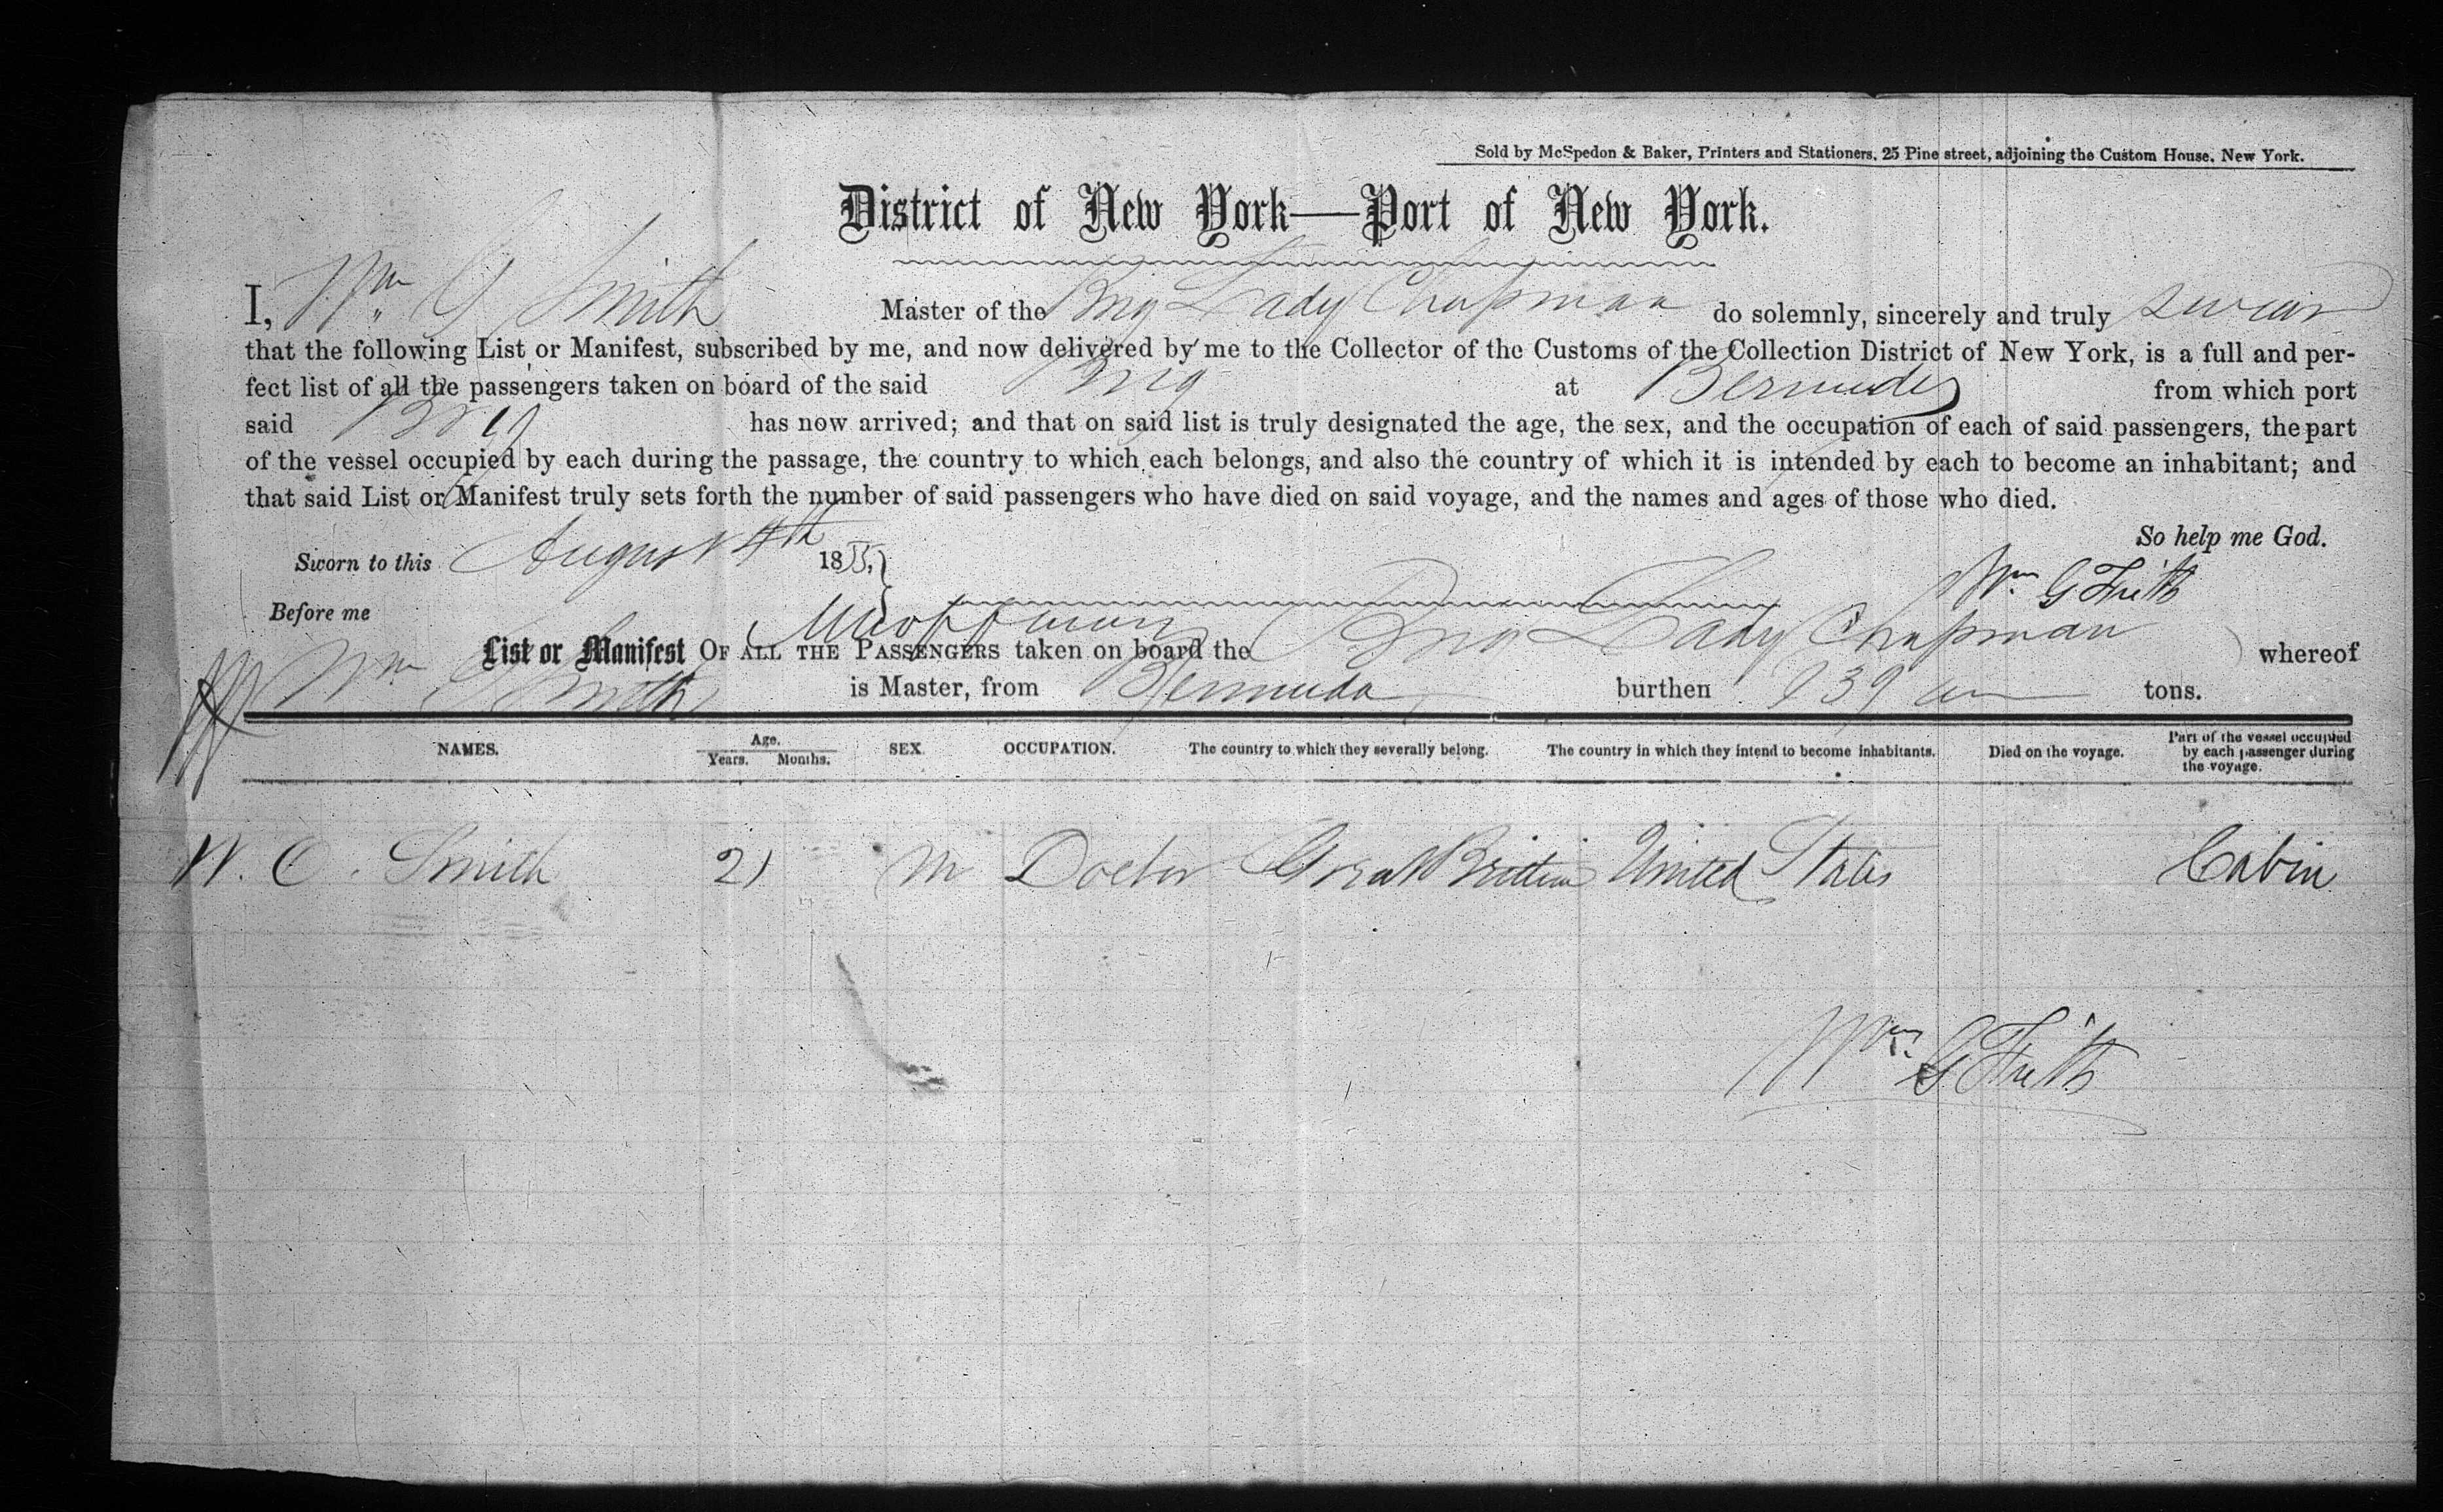 Sold by McSpedon & Baker, Printers and Stationers, 25 Pine street, adjoining the Custom House, New York.
District of New York—Port of New York.
I, Wm G Smith Master of the Brig Lady Chapman do solemnly, sincerely and truly swear
that the following List or Manifest, subscribed by me, and now delivered by me to the Collector of the Customs of the Collection District of New York, is a full and per-
fect list of all the passengers taken on board of the said Brig at Bermuda from which port
said Brig has now arrived; and that on said list is truly designated the age, the sex, and the occupation of each of said passengers, the part
of the vessel occupied by each during the passage, the country to which each belongs, and also the country of which it is intended by each to become an inhabitant; and
that said List or Manifest truly sets forth the number of said passengers who have died on said voyage, and the names and ages of those who died.
So help me God.
Sworn to this August 4th 1855,
Wm. G Frith
Before me
List or Manifest OF ALL THE PASSENGERS taken on board the Brig Lady Chapman whereof
Wm G Smith is Master, from Bermuda burthen 139 tons.
NAMES. Age. Years. Months. SEX. OCCUPATION. The country to which they severally belong. The country in which they intend to become inhabitants. Died on the voyage. Part of the vessel occupied by each passenger during the voyage.
W. O. Smith 21 M Doctor Great Brittian United States Cabin
Wm. G Frith